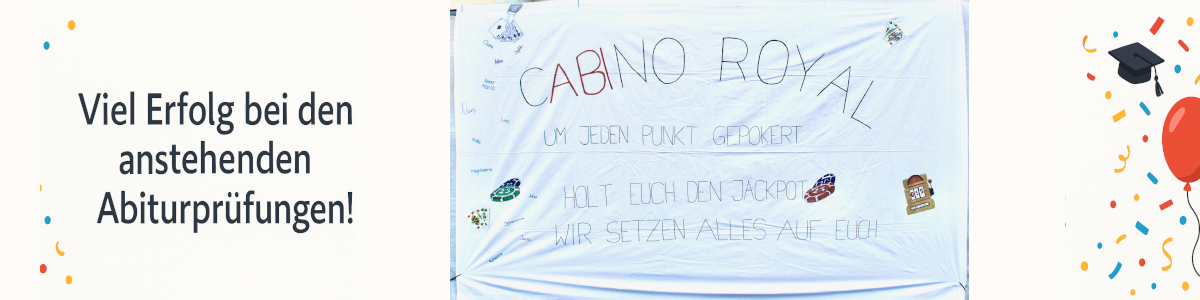 Viel Erfolg bei den
anstehenden
Abiturprüfungen!
CABINO ROYAL
UM JEDEN PUNKT GEPOKERT
HOLT EUCH DEN JACKPOT
WIR SETZEN ALLES AUF EUCH